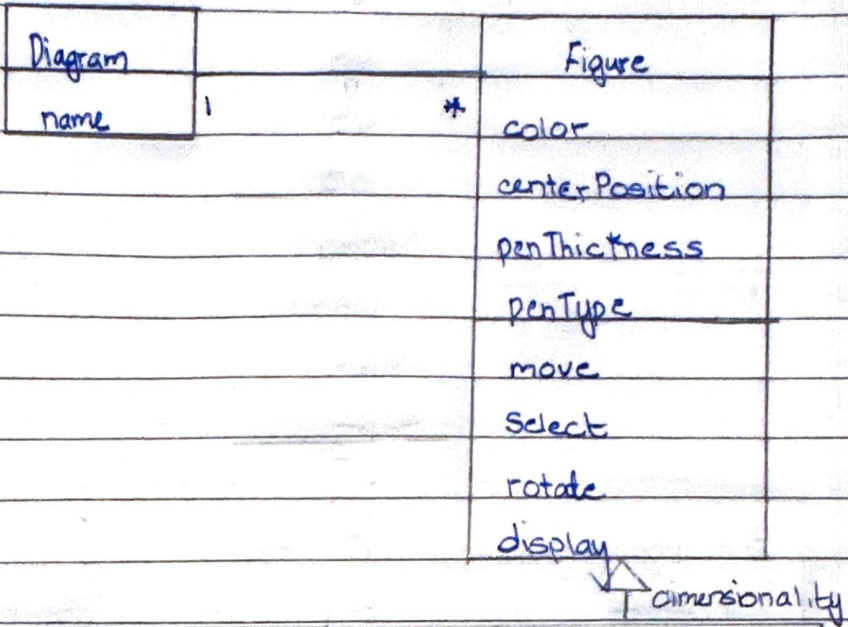 Diagram
name
1
*
Figure
color
centerPosition
penThickness
penType
move
select
rotate
display
dimensionality